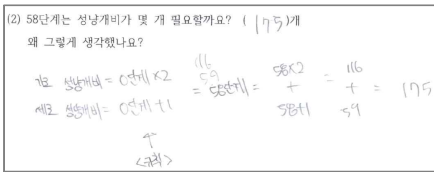 (2) 58단계는 성냥개비가 몇 개 필요할까요? ( 175 )개
왜 그렇게 생각했나요?
가로 성냥개비 = 0단계 × 2
세로 성냥개비 = 0단계 + 1
116
59
= 58단계 =
58×2
+
58+1
=
116
+
59
= 175
↑
<규칙>